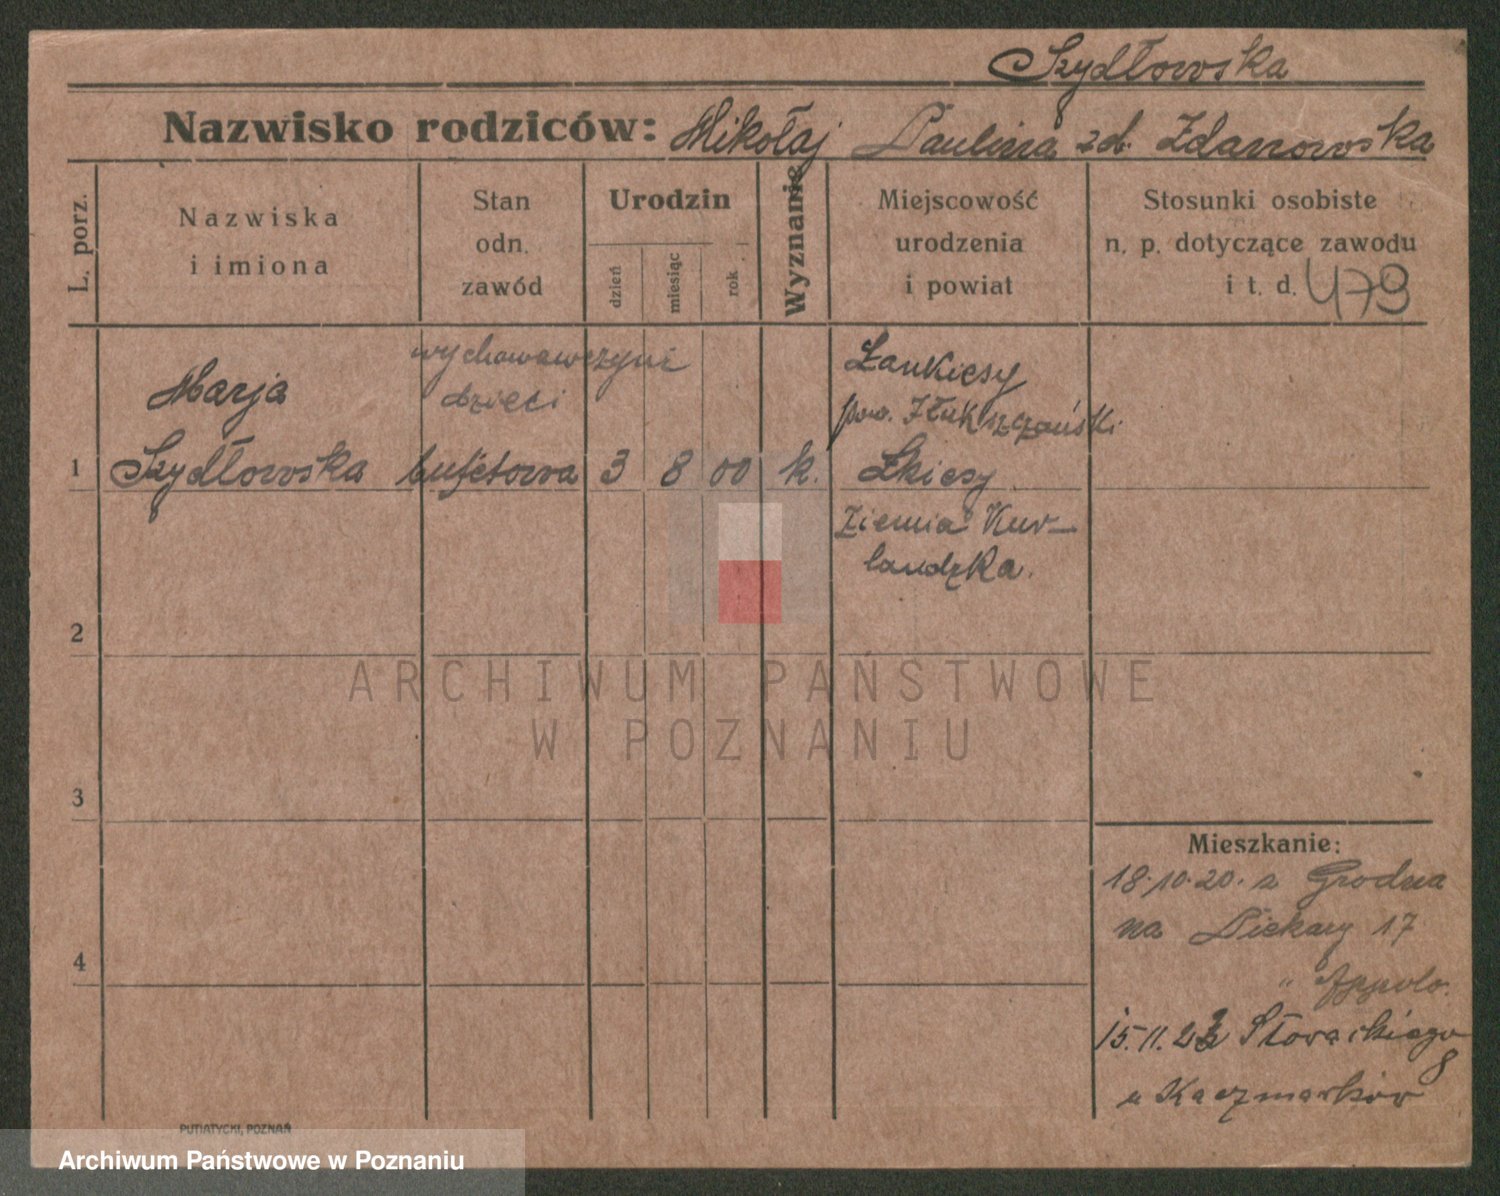 Szydłowska
Nazwisko rodziców: Mikołaj Paulina zd. Zdanowska
L. porz.
Nazwiska
i imiona
Stan
odn.
zawód
Urodzin
dzień
miesiąc
rok
Wyznanie
Miejscowość
urodzenia
i powiat
Stosunki osobiste
n. p. dotyczące zawodu
i t. d. 479
wychowawczyni
dzieci
Marja
1 Szydłowska bufetowa 3 8 00 k.
Łaukiesy
pow. Iłłukszczański
Łkiesy
Ziemia Kur-
landzka.
2
3
4
Mieszkanie:
18.10.20. z Grodna
na Piekary 17
" Appolo.
15.11. Słowackiego
8
u Kaczmarków
PUTIATYCKI, POZNAŃ
ARCHIWUM PAŃSTWOWE
W POZNANIU
Archiwum Państwowe w Poznaniu